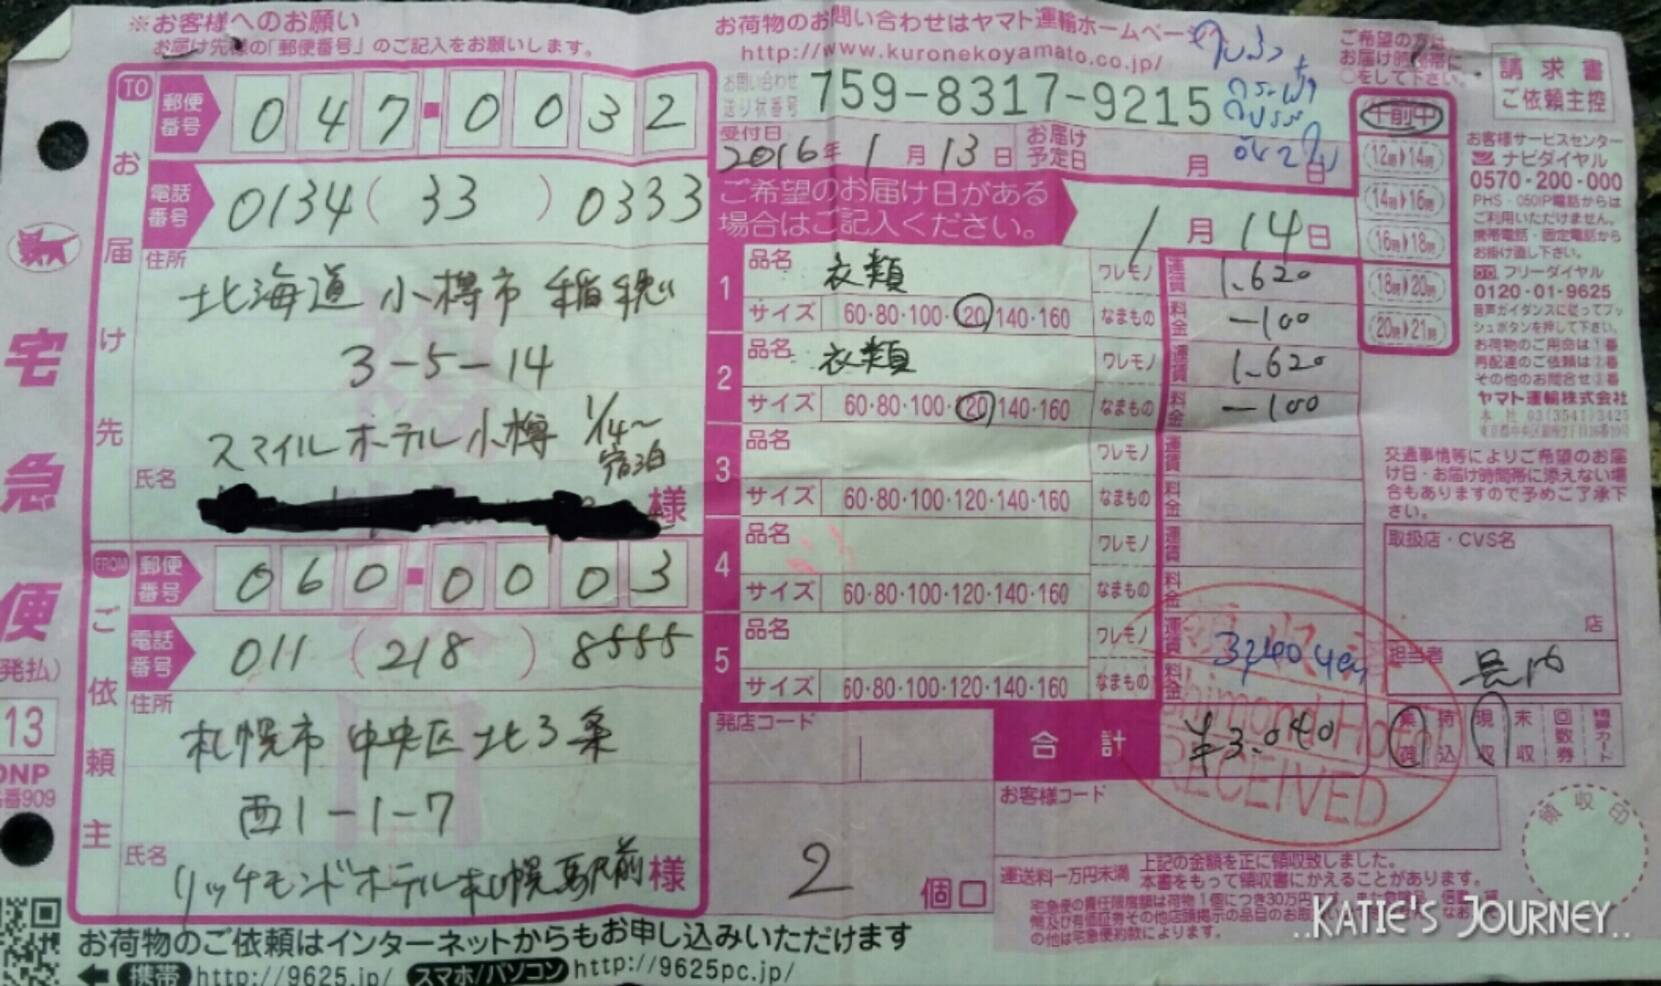 ※お客様へのお願い
お届け先様の「郵便番号」のご記入をお願いします。
TO
お届け先
郵便番号
047-0032
電話番号
0134(33)0333
住所
北海道 小樽市 稲穂
3-5-14
スマイルホテル小樽 1/14~宿泊
氏名
様
FROM
ご依頼主
郵便番号
060-0003
電話番号
011(218)8555
住所
札幌市 中央区 北3条
西1-1-7
氏名
リッチモンドホテル札幌駅前 様
宅急便
発払)
13
DNP
番909
お荷物のご依頼はインターネットからもお申し込みいただけます
携帯 http://9625.jp/ スマホ/パソコン http://9625pc.jp/
お荷物のお問い合わせはヤマト運輸ホームペー
http://www.kuronekoyamato.co.jp/
お問い合わせ送り状番号
759-8317-9215
受付日
2016年 1月 13日
お届け予定日 月 日
ご希望のお届け日がある
場合はご記入ください。
1月 14日
1
品名 衣類 ワレモノ 運賃 1,620
サイズ 60・80・100・120・140・160 なまもの 料金 -100
2
品名 衣類 ワレモノ 運賃 1,620
サイズ 60・80・100・120・140・160 なまもの 料金 -100
3
品名 ワレモノ 運賃
サイズ 60・80・100・120・140・160 なまもの 料金
4
品名 ワレモノ 運賃
サイズ 60・80・100・120・140・160 なまもの 料金
5
品名 ワレモノ 運賃
サイズ 60・80・100・120・140・160 なまもの 料金
発店コード
合計 ¥3,040
RECEIVED
お客様コード
2個口
運送料一万円未満
上記の金額を正に領収致しました。
本書をもって領収書にかえることがあります。
ご希望の方は、
お届け時間帯に
○をして下さい。
午前中
12時▶14時
14時▶16時
16時▶18時
18時▶20時
20時▶21時
請求書
ご依頼主控
お客様サービスセンター
ナビダイヤル
0570-200-000
PHS・050IP電話からは
ご利用いただけません。
携帯電話・固定電話から
お掛け直し下さい。
フリーダイヤル
0120-01-9625
音声ガイダンスに従ってプッ
シュボタンを押して下さい。
お荷物のご用命は1番
再配達のご依頼は2番
その他のお問合せ3番
ヤマト運輸株式会社
交通事情等によりご希望のお届
け日・お届け時間帯に添えない場
合もありますので予めご了承下
さい。
取扱店・CVS名
店
担当者
集荷 持込 現収 未収 回数券
領収印
..KATIE'S JOURNEY..